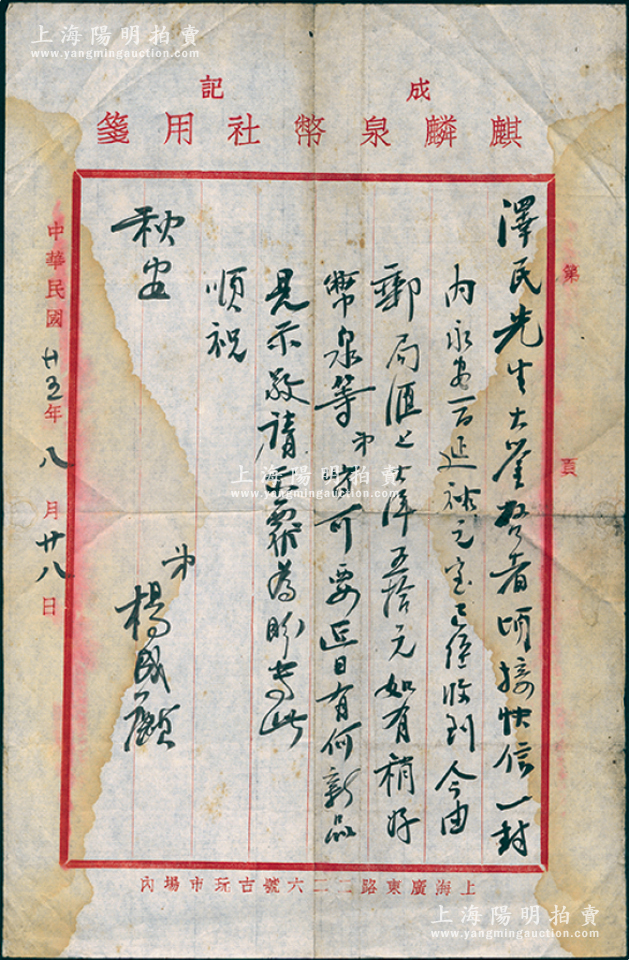 上海陽明拍賣
www.yangmingauction.com
上海陽明拍賣
www.yangmingauction.com
成記
麒麟泉幣社用箋
第 頁
澤民先生大鑒啓者頃接快信一封
內永安一百延祚元宝已經收到今由
郵局匯上大洋五拾元如有稍好
幣泉等弟皆可要近日有何新品
見示敬請示覆為盼專此
順祝
秋安
弟
楊成麒
中華民國廿五年八月廿八日
上海廣東路二二六號古玩市場內
上海陽明拍賣
www.yangmingauction.com
上海陽明拍賣
www.yangmingauction.com